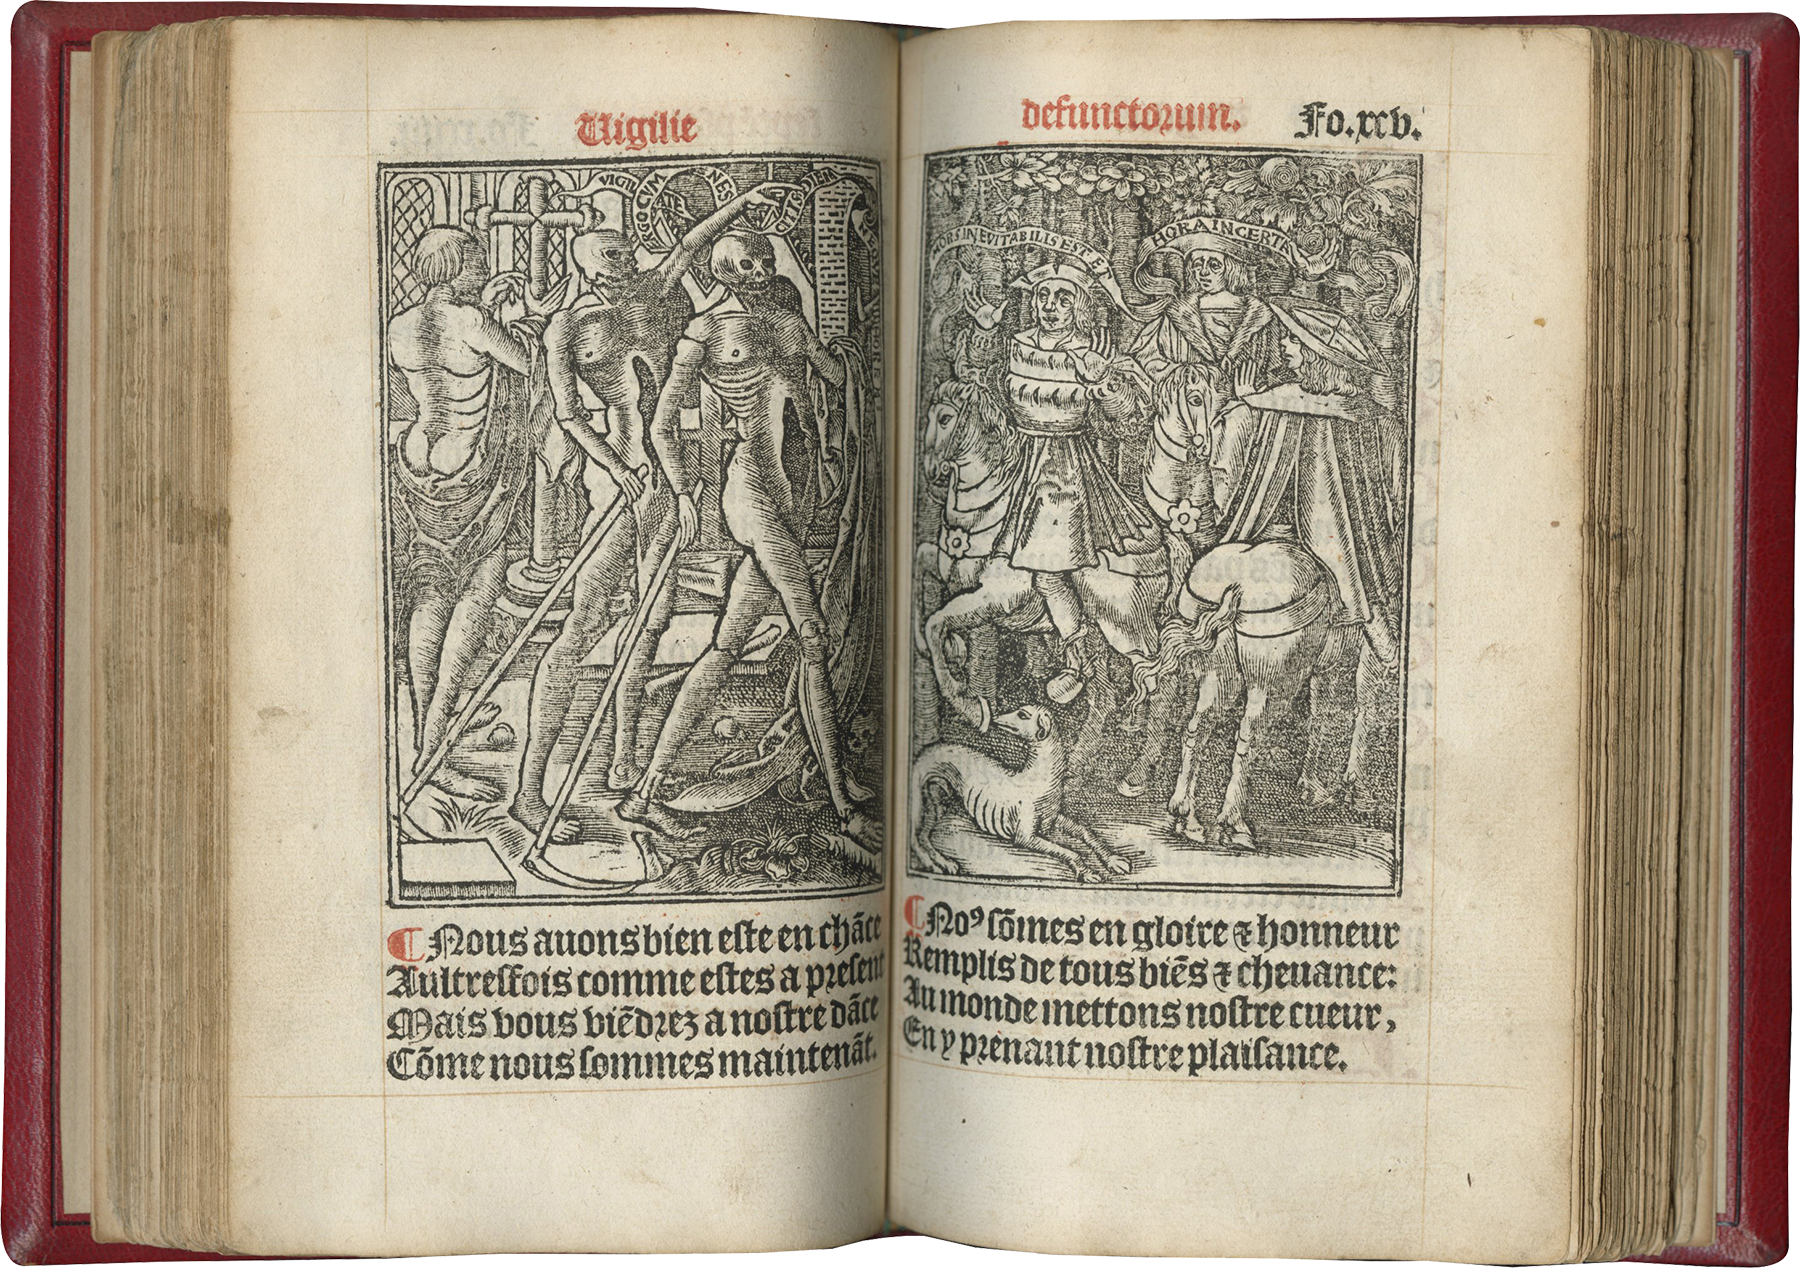 Uigilie
VIGIL
ERGO CUM
NES
DIEM
NEQVE
¶ Nous auons bien este en chãce
Aultresfois comme estes a present
Mais vous viẽdrez a nostre dãce
Cõme nous sommes maintenãt.
defunctorum. Fo.xxv.
MORS INEUITABILIS EST ET
HORA INCERTA
¶ Noꝰ sõmes en gloire ⁊ honneur
Remplis de tous biẽs ⁊ cheuance:
Au monde mettons nostre cueur,
En y prenant nostre plaisance.